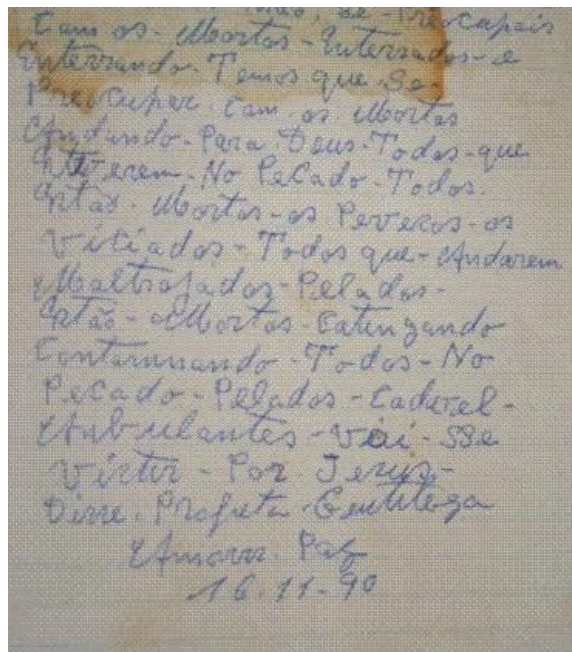 se - Preocapais
Com os - Mortos - Enterrados - e
Enterrando - Temos que Se -
Preocuper. Com os Mortos
Andando - Para Deus - Todos - que
tiverem - No Pecado - Todos.
Estão - Mortos - os Peverços - os
Vitiados - Todos que - Andarem
Maltrajados - Pelados -
Estão - Mortos - Catingando
Conternunando - Todos - No
Pecado - Pelados - Cadverel -
Anbulantes - Vai - SSe
Virtir - Por Jesus -
Disse. Profeta - Gentileza
Amorrr. Paz
16.11-90